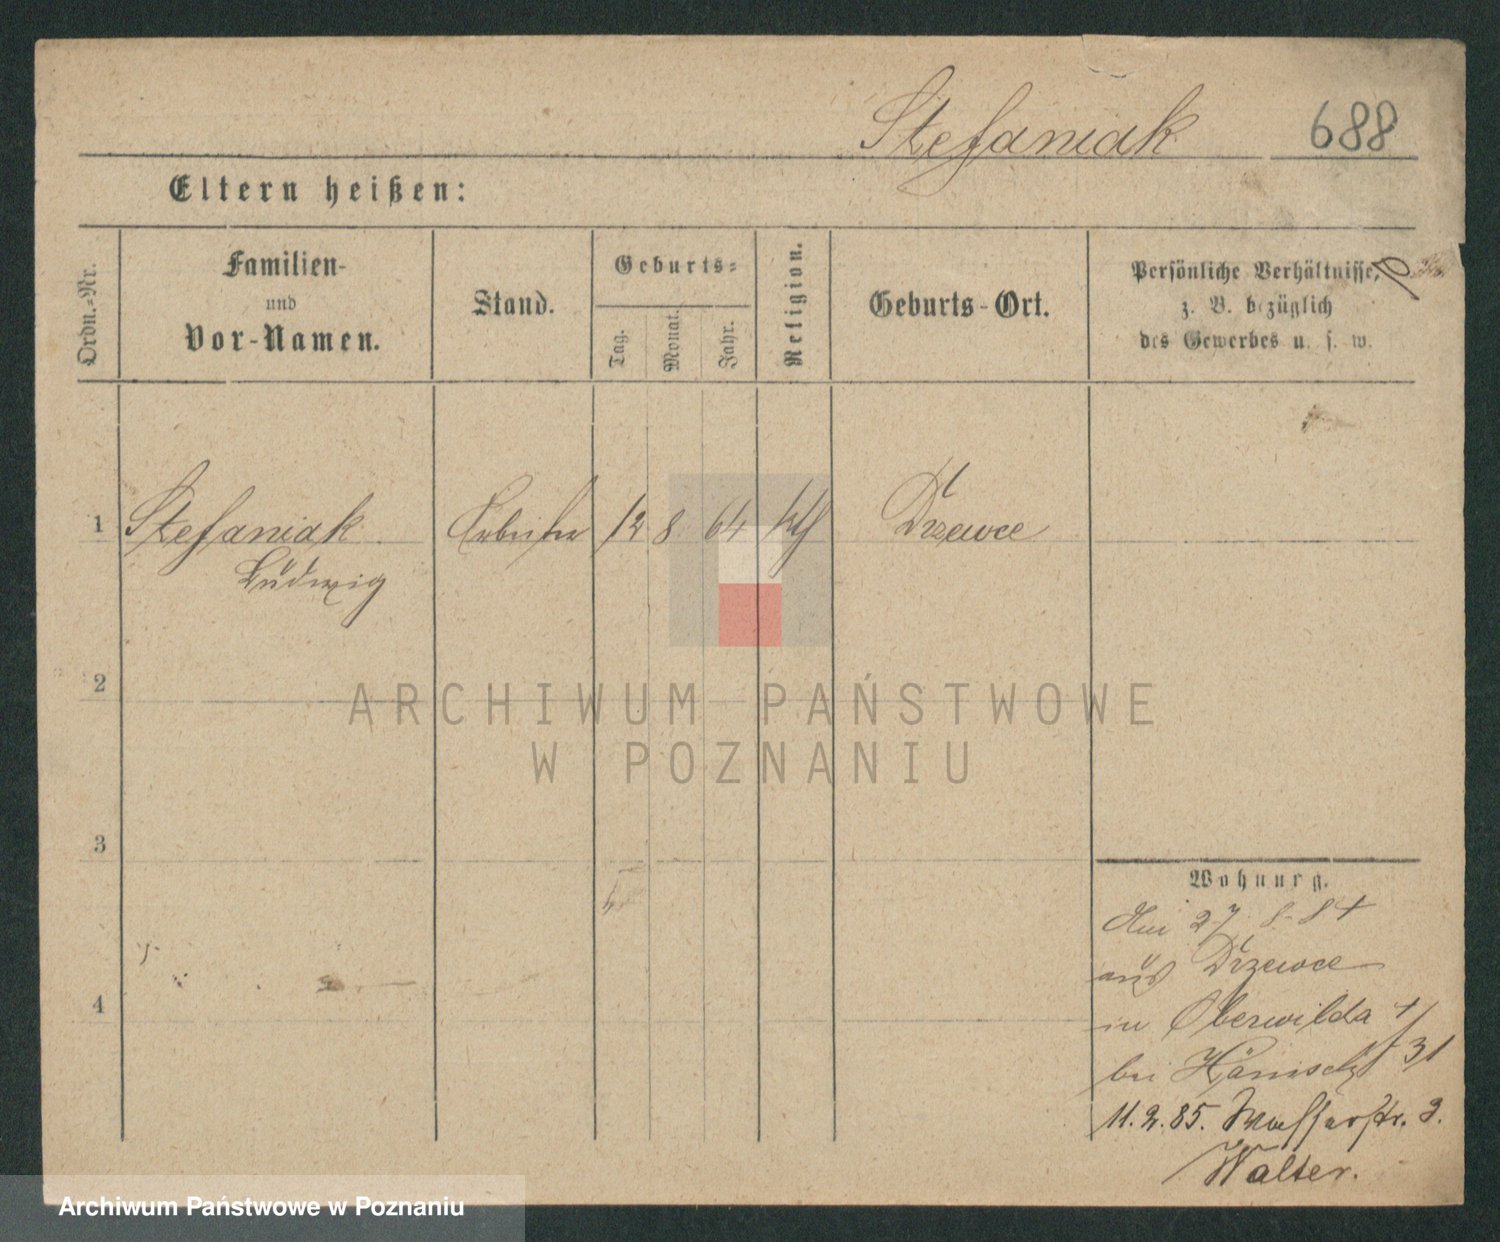 Stefaniak 688
Eltern heißen:
Ordn.-Nr.
Familien-
und
Vor-Namen.
Stand.
Geburts-
Tag.
Monat.
Jahr.
Religion.
Geburts-Ort.
Persönliche Verhältnisse,
z. B. bezüglich
des Gewerbes u. s. w.
1 Stefaniak Arbeiter 12 8 64 kth Drzewce
Ludwig
2
3
4
Wohnung.
27 8. 84
aus Drzewce
in Oberwilda
bei Hänisch 31
11.2.85. Wasserstr. 2.
Walter.
ARCHIWUM PAŃSTWOWE
W POZNANIU
Archiwum Państwowe w Poznaniu